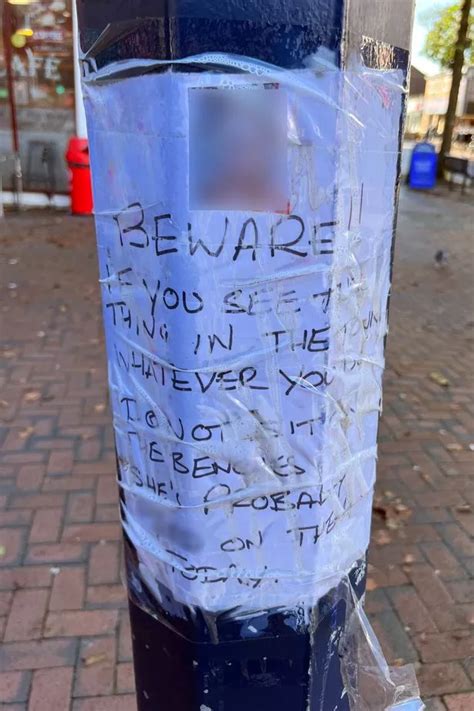 AFE
BEWARE!!
IF YOU SEE THIS
THING IN THE TOWN
WHATEVER YOU
DO NOT SIT
THE BENCHES
SHE'S PROBALY
ON THE
TODAY.